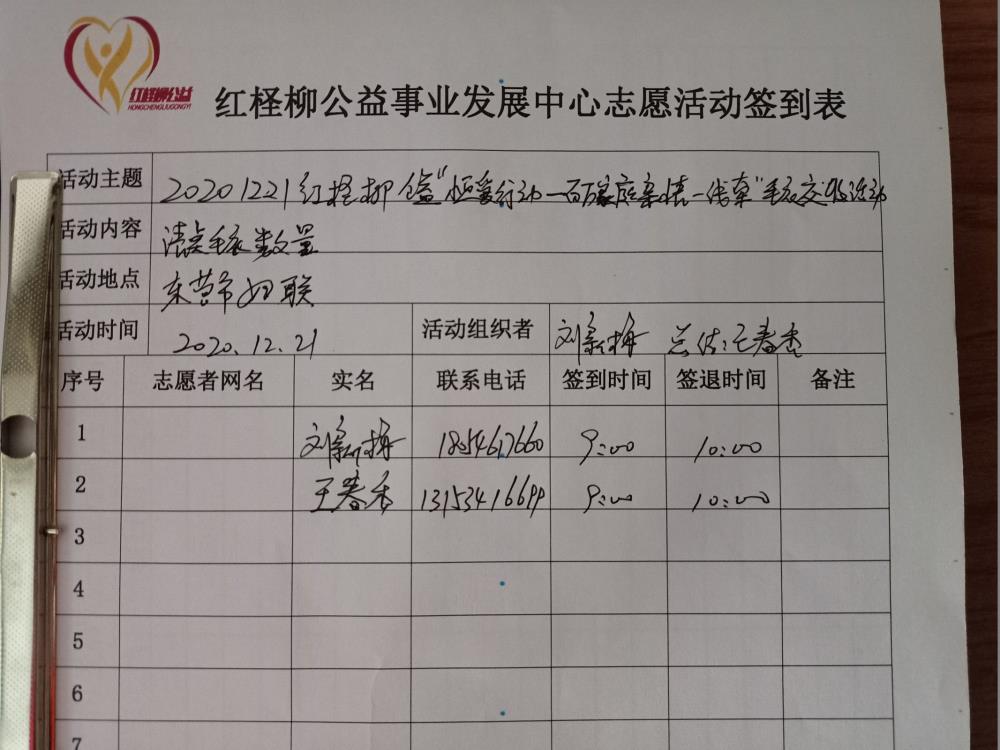 红柽柳公益
HONGCHENGLIUGONGYI
红柽柳公益事业发展中心志愿活动签到表
活动主题 20201221红柽柳公益“恒爱行动—百万家庭亲情一线牵”毛衣交接活动
活动内容 清点毛衣数量
活动地点 东营市妇联
活动时间 2020.12.21 活动组织者 刘新梅 总结:王春香
序号 志愿者网名 实名 联系电话 签到时间 签退时间 备注
1 刘新梅 18954617660 9:00 10:00
2 王春香 13153416699 9:00 10:00
3
4
5
6
7